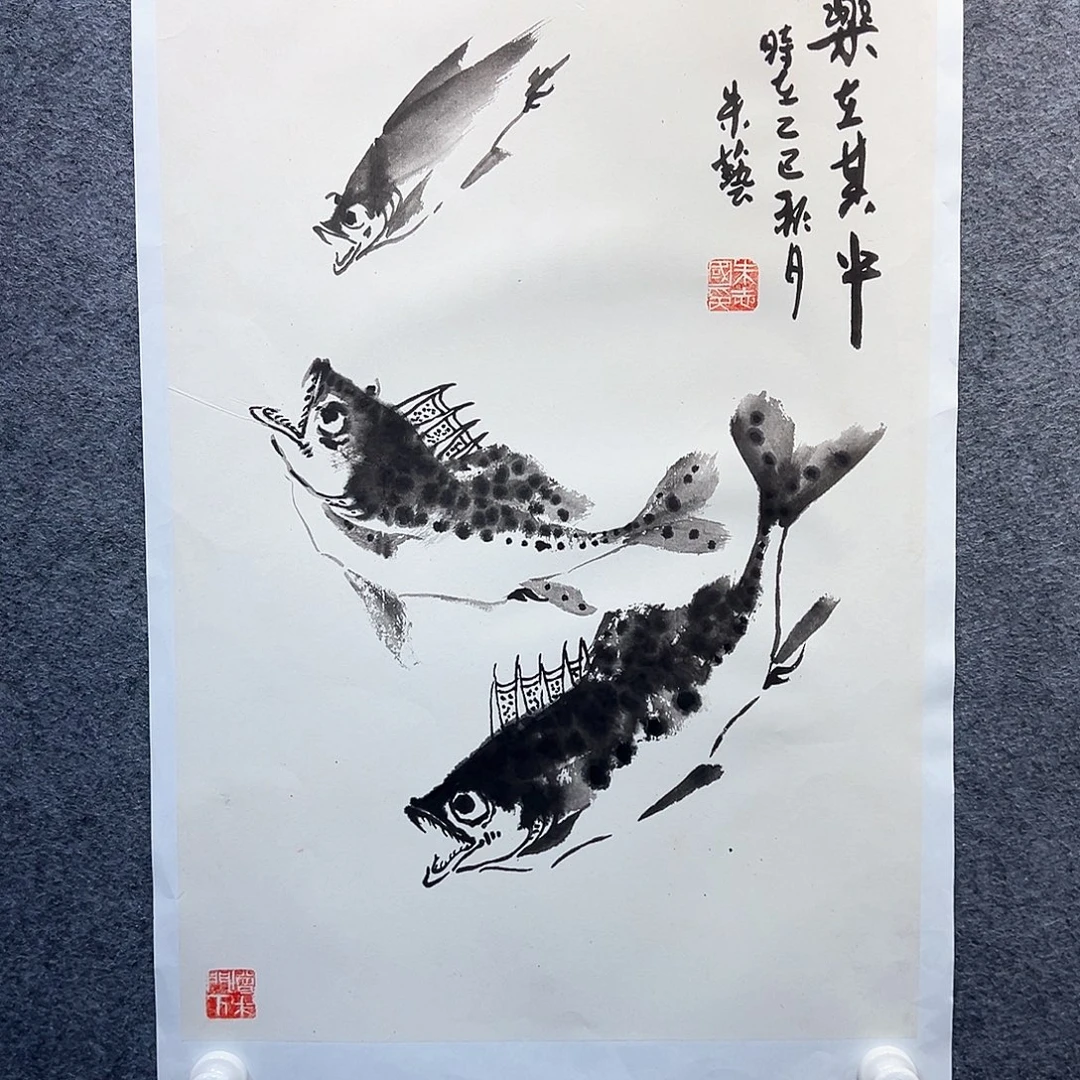 樂在其中
時在乙巳秋月
朱藝
朱志國璽